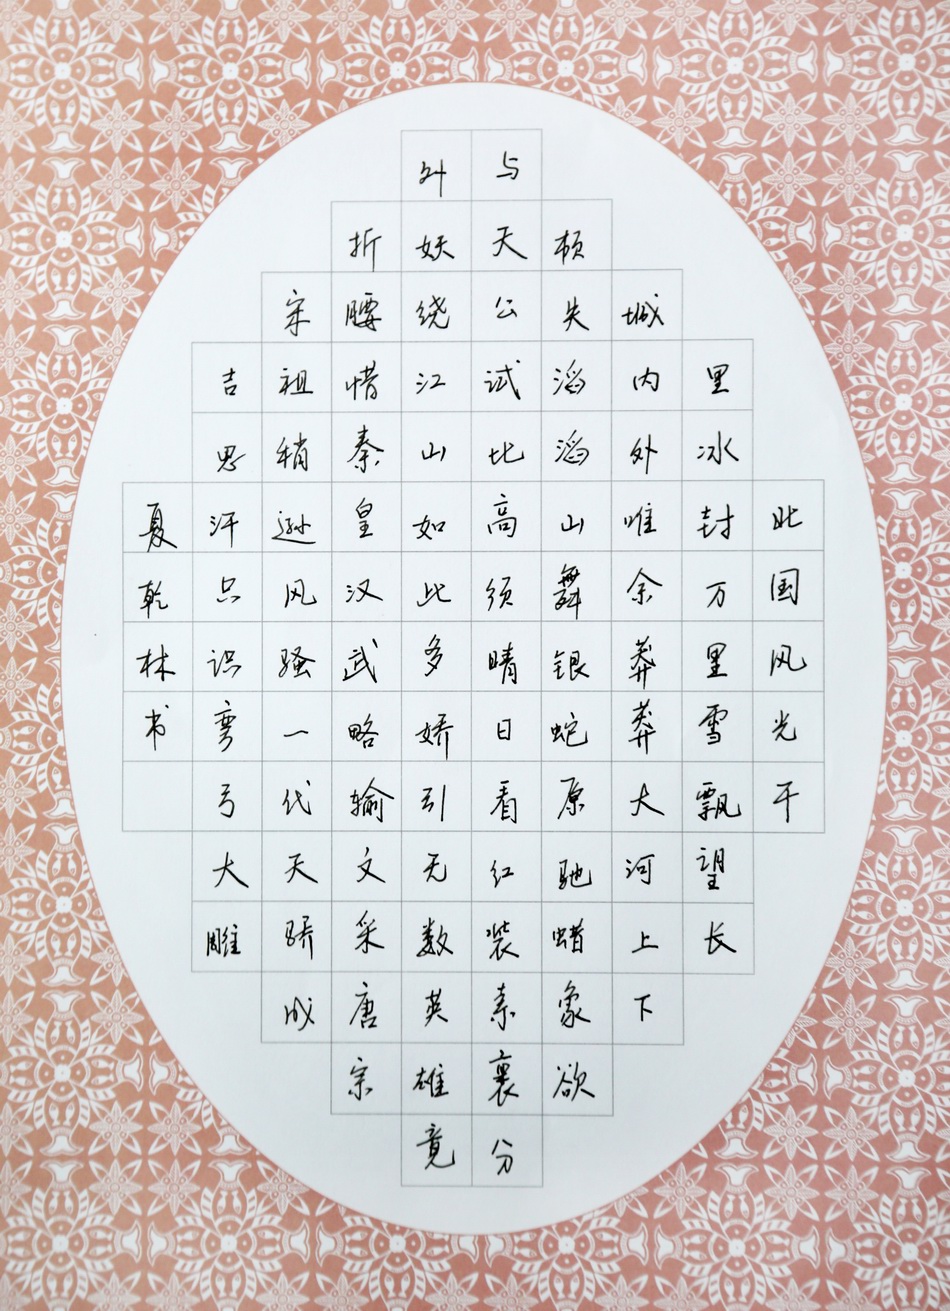 北国风光千
里冰封万里雪飘望长
城内外唯余莽莽大河上下
顿失滔滔山舞银蛇原驰蜡象欲
与天公试比高须晴日看红装素裹分
外妖绕江山如此多娇引无数英雄竟
折腰惜秦皇汉武略输文采唐宗
宋祖稍逊风骚一代天骄成
吉思汗只识弯弓大雕
夏乾林书